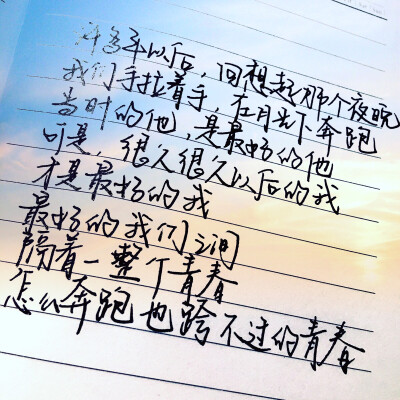 许多年以后，回想起那个夜晚
我们手拉着手，在月光下奔跑
当时的他，是最好的他
可是，很久很久以后的我
才是最好的我
最好的我们之间
隔着一整个青春
怎么奔跑也跨不过的青春